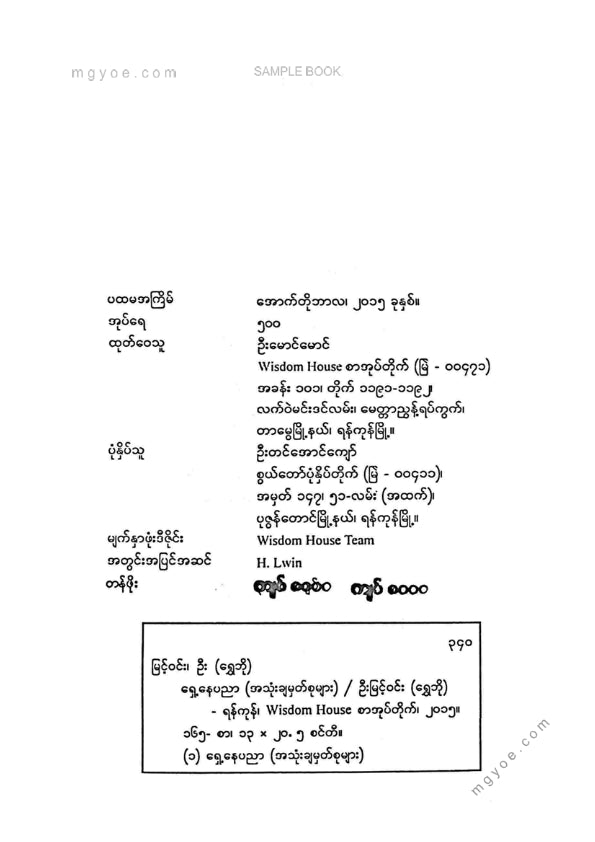 mgyoe.com SAMPLE BOOK
ပထမအကြိမ် အောက်တိုဘာလ၊ ၂၀၁၅ ခုနှစ်။
အုပ်ရေ ၅၀၀
ထုတ်ဝေသူ ဦးမောင်မောင်
Wisdom House စာအုပ်တိုက် (မြဲ - ၀၀၄၇၁)
အခန်း ၁၀၁၊ တိုက် ၁၁၉၁-၁၁၉၂၊
လက်ဝဲမင်းဒင်လမ်း၊ မေတ္တာညွန့်ရပ်ကွက်၊
တာမွေမြို့နယ်၊ ရန်ကုန်မြို့။
ပုံနှိပ်သူ ဦးတင်အောင်ကျော်
စွယ်တော်ပုံနှိပ်တိုက် (မြဲ - ၀၀၄၁၁)၊
အမှတ် ၁၄၇၊ ၅၁-လမ်း (အထက်)၊
ပုဇွန်တောင်မြို့နယ်၊ ရန်ကုန်မြို့။
မျက်နှာဖုံးဒီဇိုင်း Wisdom House Team
အတွင်းအပြင်အဆင် H. Lwin
တန်ဖိုး ကျပ် ၁၀၀၀
၃၄၀
မြင့်ဝင်း၊ ဦး (ရွှေဘို)
ရှေ့နေပညာ (အသုံးချမှတ်စုများ) / ဦးမြင့်ဝင်း (ရွှေဘို)
- ရန်ကုန်၊ Wisdom House စာအုပ်တိုက်၊ ၂၀၁၅။
၁၆၅- စာ၊ ၁၃ × ၂၀.၅ စင်တီ။
(၁) ရှေ့နေပညာ (အသုံးချမှတ်စုများ)
mgyoe.com